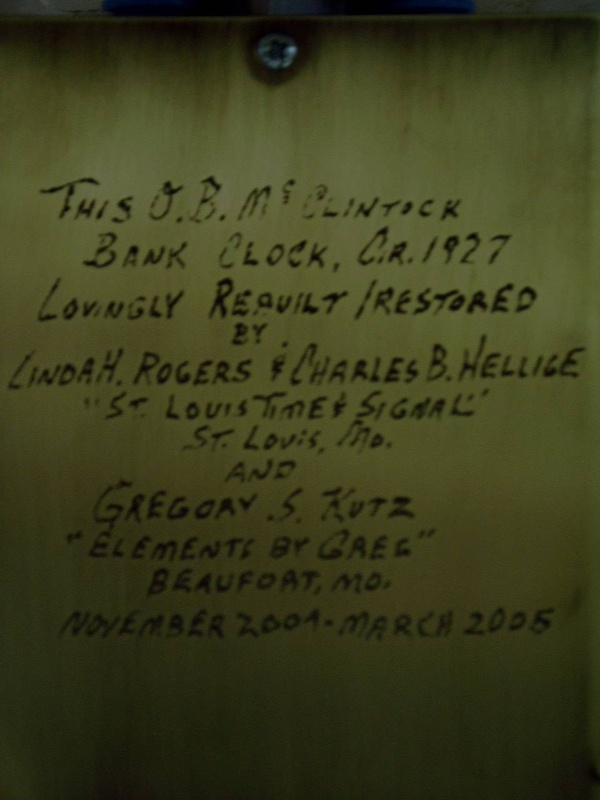 THIS O.B. Mc CLINTOCK
BANK CLOCK, CIR. 1927
LOVINGLY REBUILT/RESTORED
BY
LINDA H. ROGERS & CHARLES B. HELLIGE
"ST. LOUIS TIME & SIGNAL"
ST. LOUIS, MO.
AND
GREGORY S. KUTZ
"ELEMENTS BY GREG"
BEAUFORT, MO.
NOVEMBER 2004-MARCH 2005